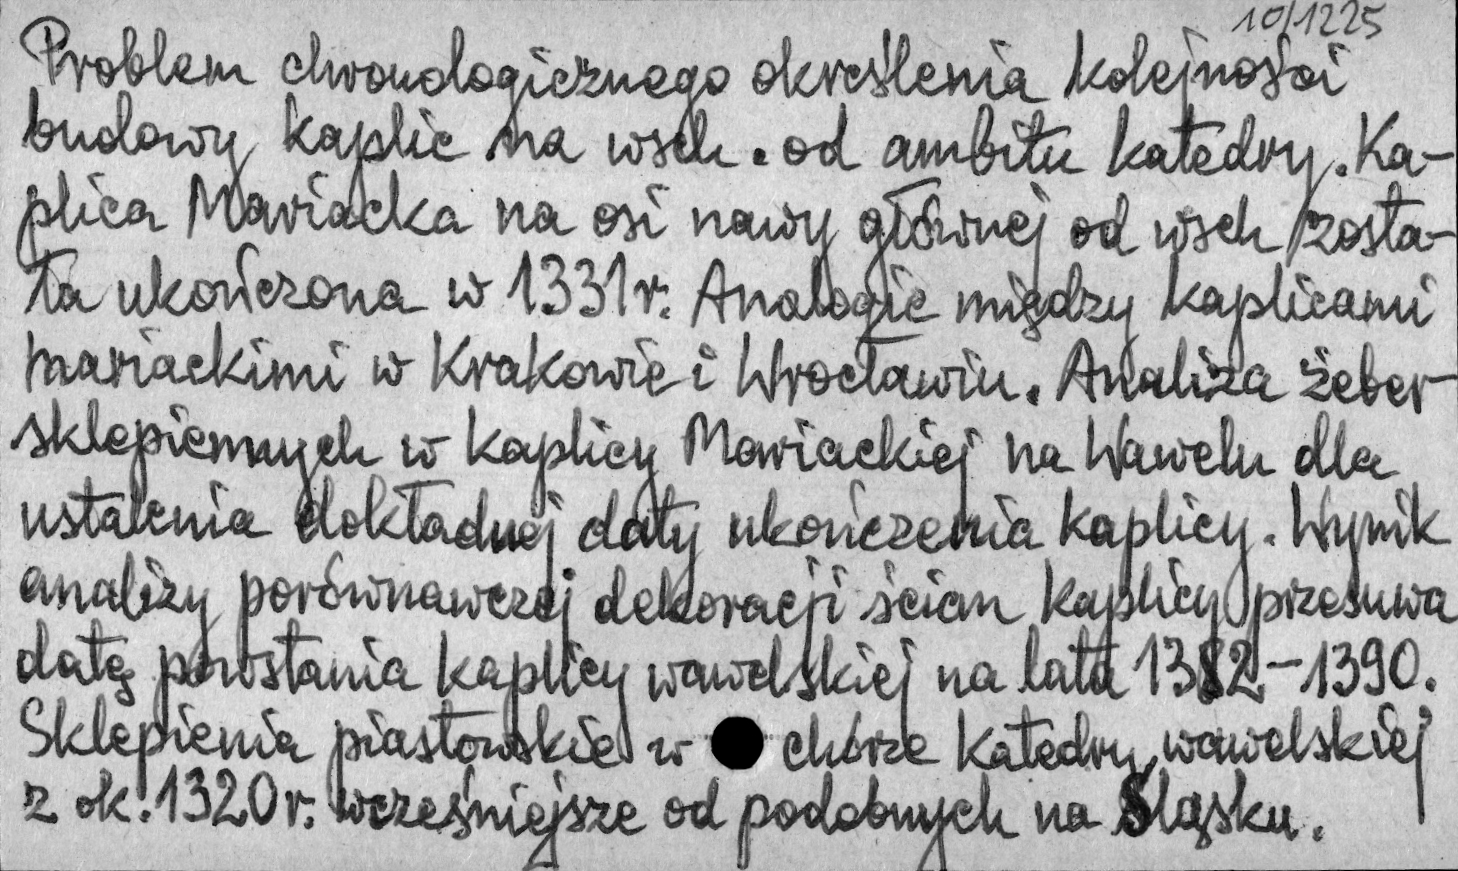 10/1225
Problem chronologicznego określenia kolejności
budowy kaplic na wsch. od ambitu katedry. Ka-
plica Mariacka na osi nawy głównej od wsch zosta-
ła ukończona w 1331 r. Analogie między kaplicami
mariackimi w Krakowie i Wrocławiu. Analiza żeber
sklepiennych w kaplicy Mariackiej na Wawelu dla
ustalenia dokładnej daty ukończenia kaplicy. Wynik
analizy porównawczej dekoracji ścian kaplicy przesuwa
datę powstania kaplicy wawelskiej na lata 1382-1390.
Sklepienia piastowskie w chórze katedry wawelskiej
z ok. 1320 r. wcześniejsze od podobnych na Śląsku.